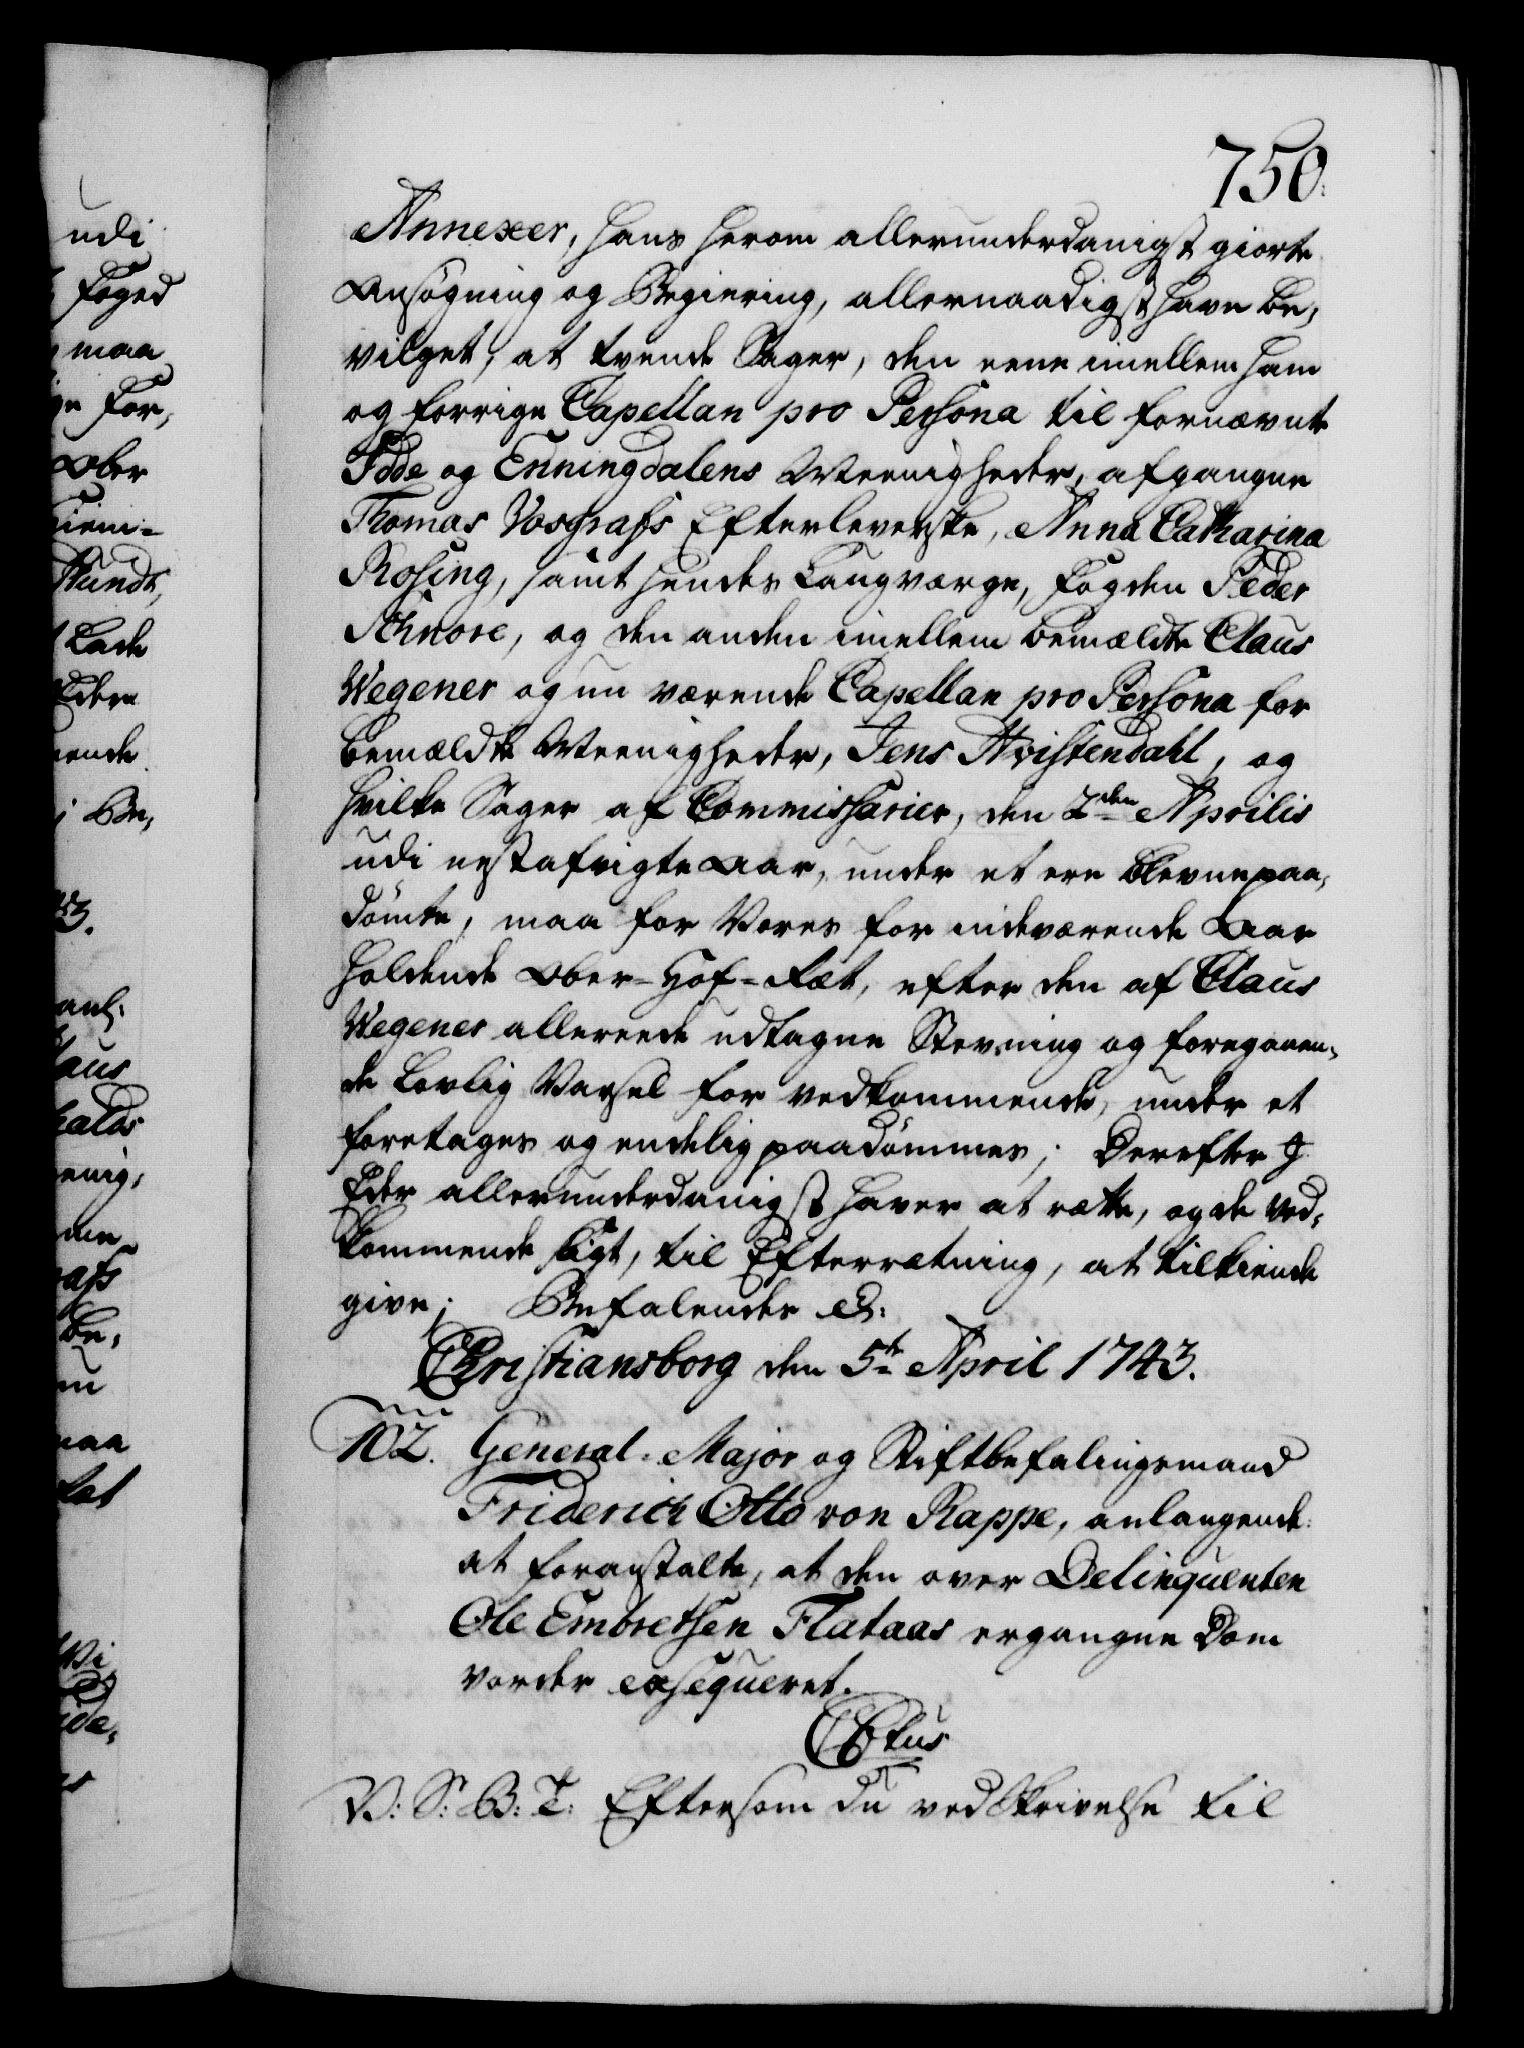 750.
Annexer, hans herom allerunderdanigst giorte
Ansögning og Begiering, allernaadigst have be,
vilget, at tvende Sager, den eene imellem ham
og forrige Capellan pro Persona til fornævnte
Idde og Enningdalens Meenigheder, afgangne
Thomas Vosgrafs Efterleverske, Anna Catharina
Rosing, samt hendes Laugværge, Fogden Peder
Schnore, og den anden imellem bemældte Claus
Wegener og nu værende Capellan pro Persona for
bemældte Meenigheder, Jens Qvistendahl, og
hvilke Sager af Commissarier, den 2den Aprilis
udi nestafvigte Aar, under et ere blevne paa,
dömte, maa for Vores for indeværende Aar
holdende Ober-Hof-Ræt, efter den af Claus
Wegener allereede udtagne Stevning og foregaaen,
de Lovlig Varsel for vedkommende, under et
foretages og endelig paadömmes; Derefter I
Eder allerunderdanigst haver at rætte, og de ved,
kommende sligt, til Efterretning, at tilkiende
give; Befalendes &:
Christiansborg den 5te April 1743.
102. General-Major og Stiftbefalingsmand
Friderich Otto von Rappe, anlangende
at foranstalte, at den over Delinquenten
Ole Embretsen Flataas ergangne Dom
vorder exseqveret.
C6tus
V: S: B: T: Eftersom du ved Skrivelse til
udi
Foged
maa
For,
Ober
Lade
ende
Be,
Claus
enig,
den
be,
maa
Vi